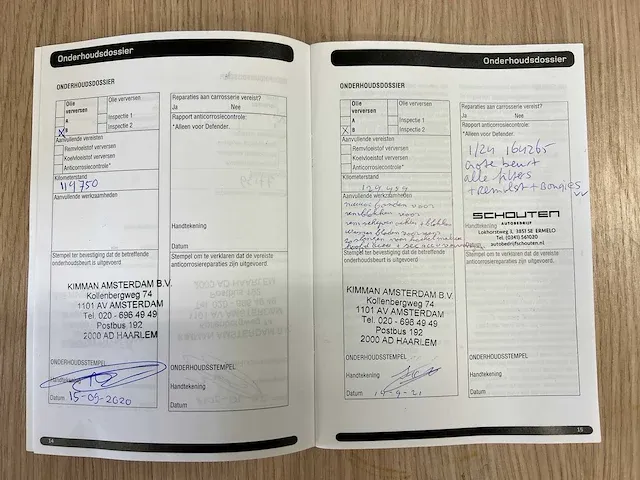 Onderhoudsdossier
ONDERHOUDSDOSSIER
Olie verversen
A
X B
Olie verversen
Inspectie 1
Inspectie 2
Aanvullende vereisten
Remvloeistof verversen
Koelvloeistof verversen
Anticorrosiecontrole*
Kilometerstand
119750
Aanvullende werkzaamheden
Stempel ter bevestiging dat de betreffende
onderhoudsbeurt is uitgevoerd
KIMMAN AMSTERDAM B.V.
Kollenbergweg 74
1101 AV AMSTERDAM
Tel. 020 - 696 49 49
Postbus 192
2000 AD HAARLEM
ONDERHOUDSSTEMPEL
Handtekening
Datum 15-09-2020
Reparaties aan carrosserie vereist?
Ja Nee
Rapport anticorrosiecontrole:
*Alleen voor Defender.
Handtekening
Datum
Stempel om te verklaren dat de vereiste
anticorrosiereparaties zijn uitgevoerd.
ONDERHOUDSSTEMPEL
Handtekening
Datum
14
Onderhoudsdossier
ONDERHOUDSDOSSIER
Olie verversen
A
X B
Olie verversen
Inspectie 1
Inspectie 2
Aanvullende vereisten
Remvloeistof verversen
Koelvloeistof verversen
Anticorrosiecontrole*
Kilometerstand
129459
Aanvullende werkzaamheden
nieuwe banden voor
remblokken voor
Stempel ter bevestiging dat de betreffende
onderhoudsbeurt is uitgevoerd
KIMMAN AMSTERDAM B.V.
Kollenbergweg 74
1101 AV AMSTERDAM
Tel. 020 - 696 49 49
Postbus 192
2000 AD HAARLEM
ONDERHOUDSSTEMPEL
Handtekening
Datum 14-9-21
Reparaties aan carrosserie vereist?
Ja Nee
Rapport anticorrosiecontrole:
*Alleen voor Defender.
1/24 164265
grote beurt
alle filters
+ Remvlst + Bougies
SCHOUTEN
AUTOBEDRIJF
Lokhorstweg 11, 3851 SE ERMELO
Tel. (0341) 561020
autobedrijfschouten.nl
Datum
Stempel om te verklaren dat de vereiste
anticorrosiereparaties zijn uitgevoerd.
ONDERHOUDSSTEMPEL
Handtekening
Datum
15